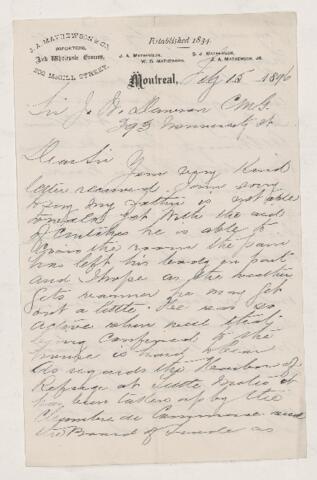 J. A. MATHEWSON & CO.
IMPORTERS,
And Wholesale Grocers,
202 McGILL STREET.
Established 1834.
J. A. MATHEWSON,
W. B. MATHEWSON,
S. J. MATHEWSON,
J. A. MATHEWSON, JR.
Montreal, Feby 15 1896
Sir J. W. Dawson CMG
293 University St
Dear Sir Your very kind
letter received. I am sorry
to say my father is not able
to walk yet with the aid
of crutches he is able to
cross the room the pain
has left his body in part
and I hope as the weather
gets warmer he may get
out a little. He was so
active when well that
being confined to the
house is hard to bear
As regards the Harbor of
Refuge at Little it
has been taken up by the
Chambre de Commerce and
the Board of Trade as